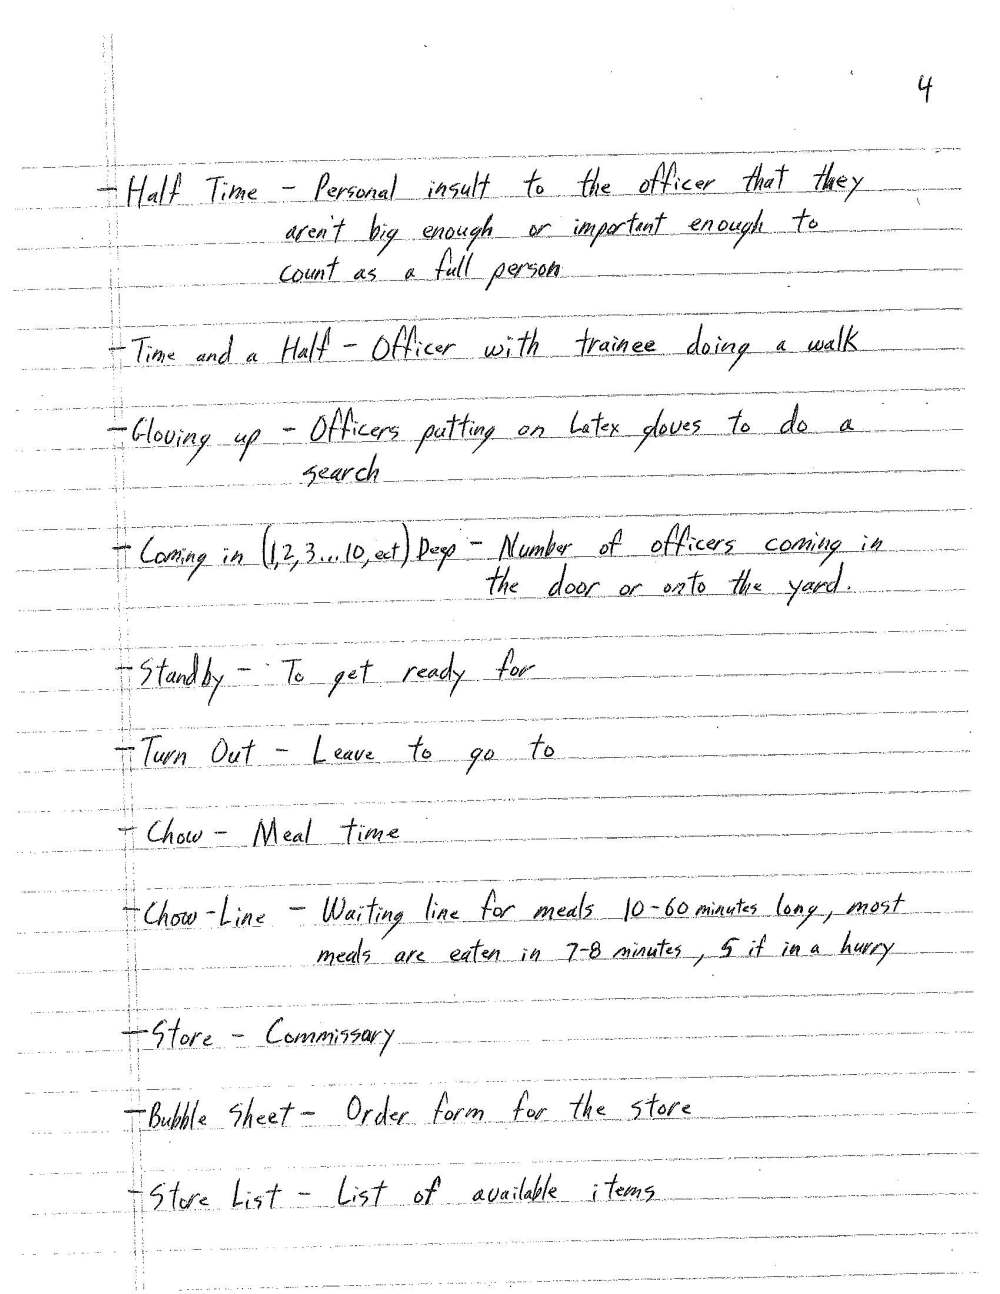 4
- Half Time - Personal insult to the officer that they
aren't big enough or important enough to
count as a full person
- Time and a Half - Officer with trainee doing a walk
- Gloving up - Officers putting on Latex gloves to do a
search
- Coming in (1,2,3...10, ect) Deep - Number of officers coming in
the door or onto the yard.
- Standby - To get ready for
- Turn Out - Leave to go to
- Chow - Meal time
- Chow-Line - Waiting line for meals 10-60 minutes long, most
meals are eaten in 7-8 minutes, 5 if in a hurry
- Store - Commissary
- Bubble Sheet - Order form for the store
- Store List - List of available items